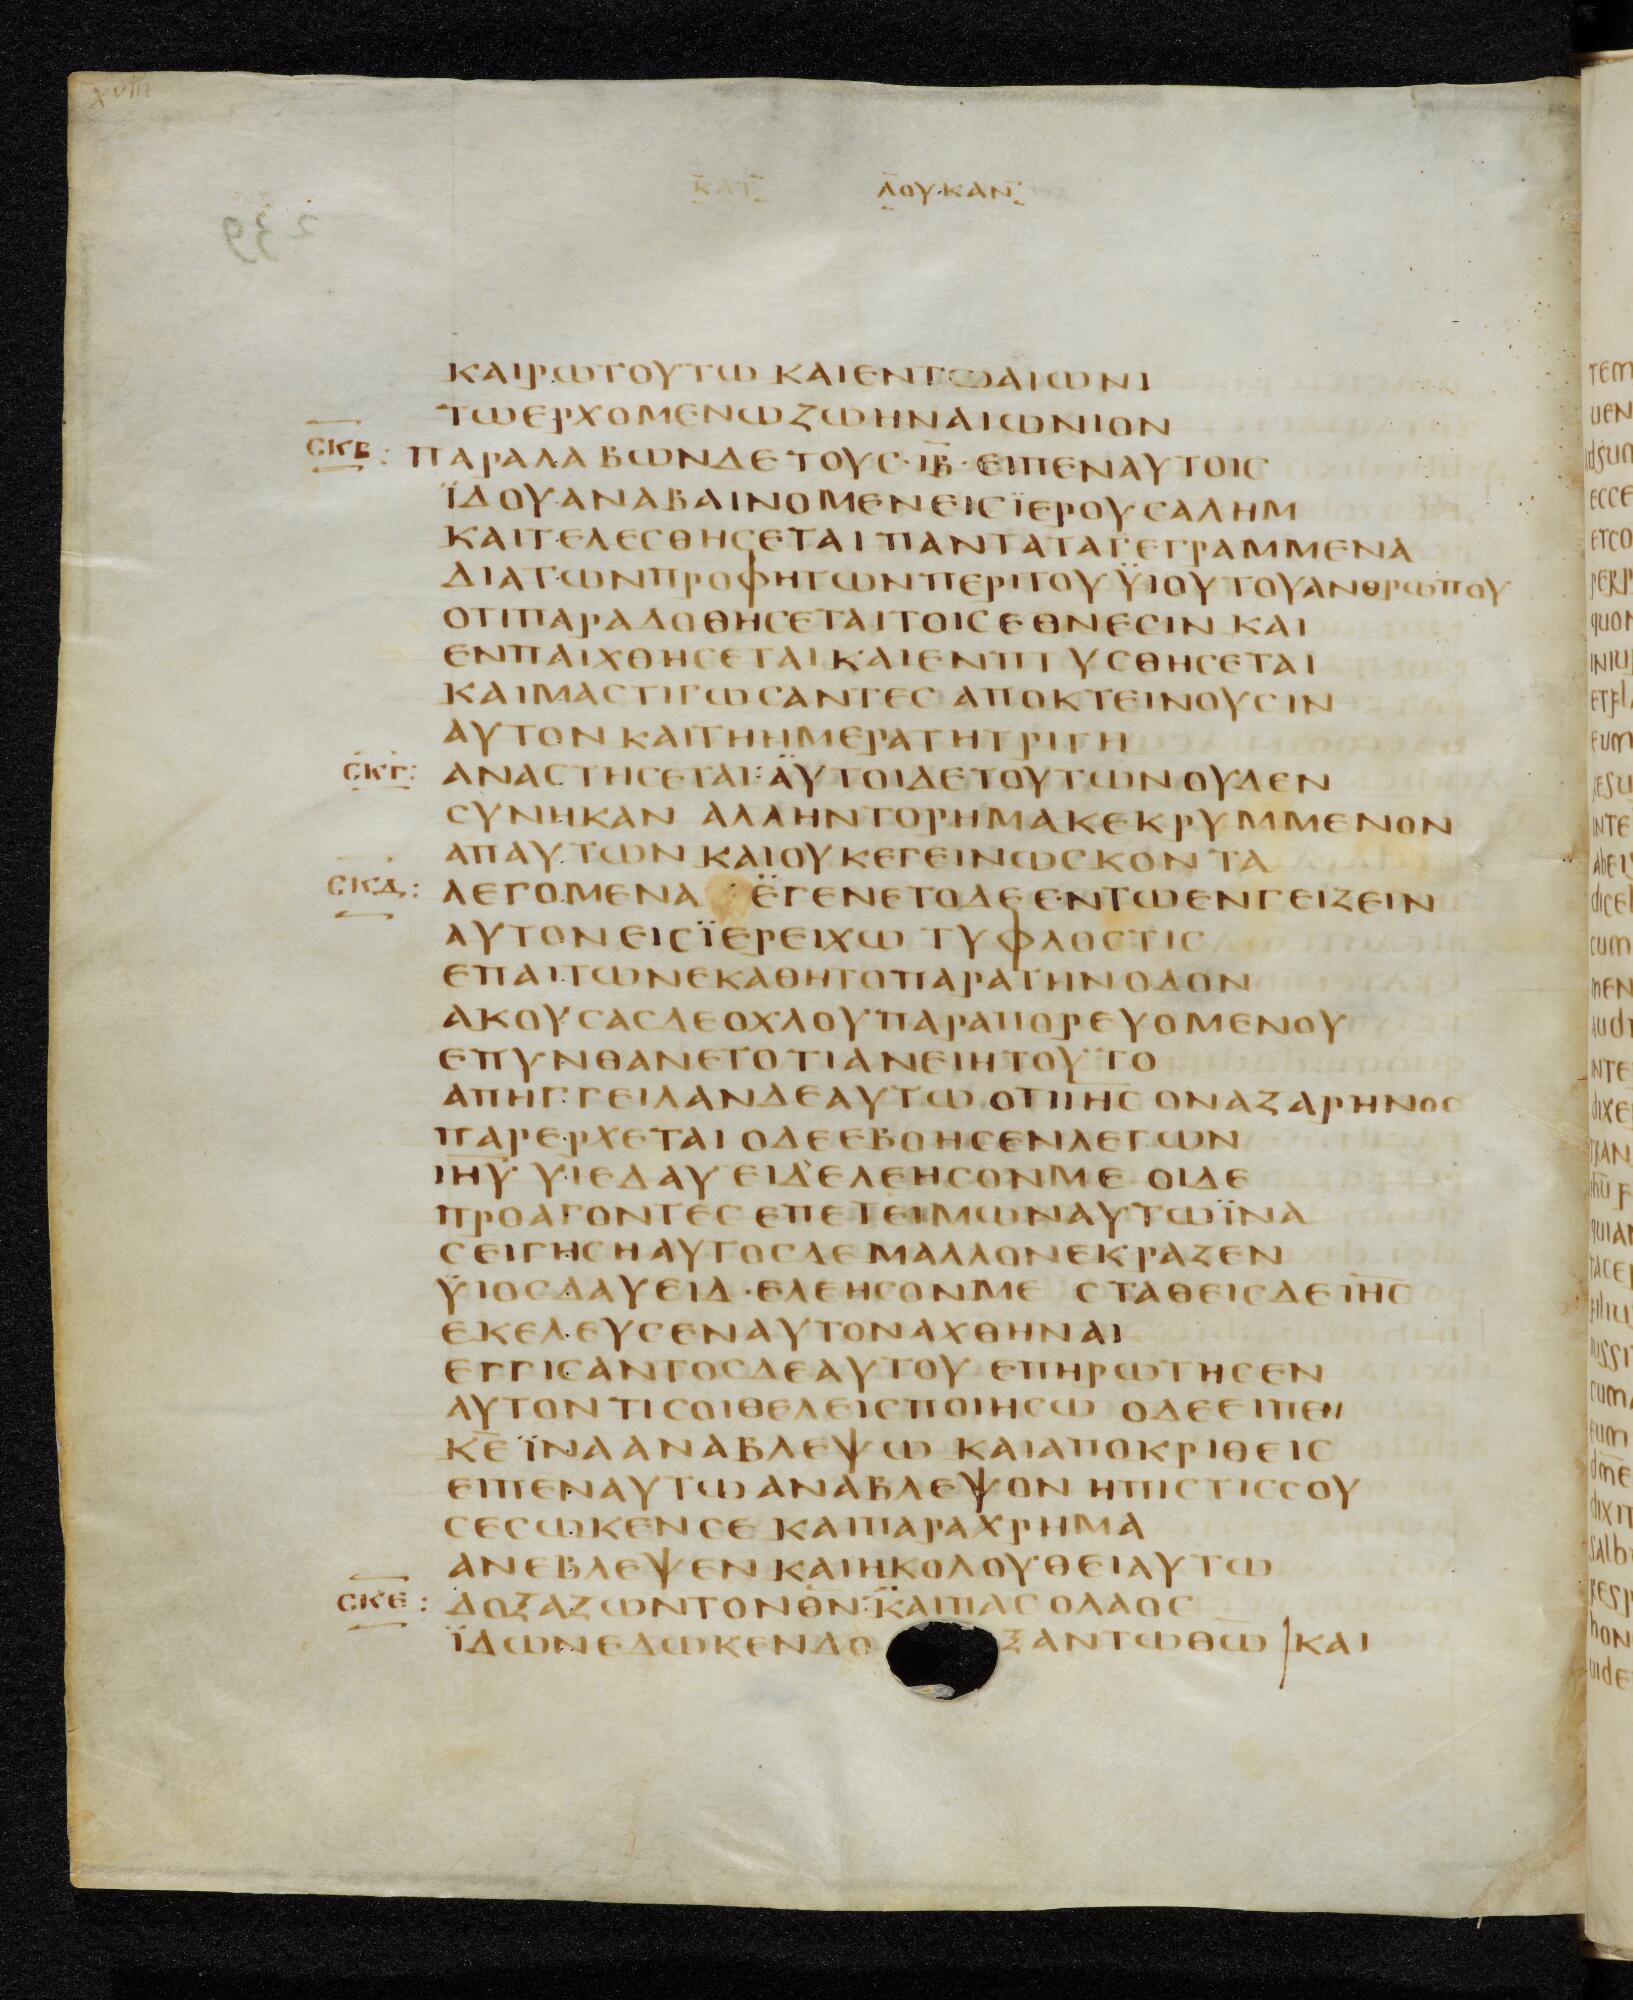 xviii
ΚΑΤ ΛΟΥΚΑΝ
239
ΚΑΙΡΩΤΟΥΤΩ ΚΑΙΕΝΤΩΑΙΩΝΙ
ΤΩΕΡΧΟΜΕΝΩΖΩΗΝΑΙΩΝΙΟΝ
ϹΚΒ: ΠΑΡΑΛΑΒΩΝΔΕΤΟΥϹ·ΙΒ̅·ΕΙΠΕΝΑΥΤΟΙϹ
ΪΔΟΥΑΝΑΒΑΙΝΟΜΕΝΕΙϹΪΕΡΟΥϹΑΛΗΜ
ΚΑΙΤΕΛΕϹΘΗϹΕΤΑΙΠΑΝΤΑΤΑΓΕΓΡΑΜΜΕΝΑ
ΔΙΑΤΩΝΠΡΟΦΗΤΩΝΠΕΡΙΤΟΥΫΙΟΥΤΟΥΑΝΘΡΩΠΟΥ
ΟΤΙΠΑΡΑΔΟΘΗϹΕΤΑΙΤΟΙϹΕΘΝΕϹΙΝ ΚΑΙ
ΕΝΠΑΙΧΘΗϹΕΤΑΙΚΑΙΕΝΠΤΥϹΘΗϹΕΤΑΙ
ΚΑΙΜΑϹΤΙΓΩϹΑΝΤΕϹ ΑΠΟΚΤΕΙΝΟΥϹΙΝ
ΑΥΤΟΝ ΚΑΙΤΗΗΜΕΡΑΤΗΤΡΙΤΗ
ϹΚΓ: ΑΝΑϹΤΗϹΕΤΑΙ:ΑΥΤΟΙΔΕΤΟΥΤΩΝ ΟΥΔΕΝ
ϹΥΝΗΚΑΝ ΑΛΛΗΝΤΟΡΗΜΑΚΕΚΡΥΜΜΕΝΟΝ
ΑΠΑΥΤΩΝ ΚΑΙΟΥΚΕΓΕΙΝΩϹΚΟΝ ΤΑ
ϹΚΔ: ΛΕΓΟΜΕΝΑ :ΕΓΕΝΕΤΟΔΕΕΝΤΩΕΝΓΕΙΖΕΙΝ
ΑΥΤΟΝΕΙϹΪΕΡΕΙΧΩ ΤΥΦΛΟϹΤΙϹ
ΕΠΑΙΤΩΝΕΚΑΘΗΤΟΠΑΡΑΤΗΝΟΔΟΝ
ΑΚΟΥϹΑϹΔΕΟΧΛΟΥΠΑΡΑΠΟΡΕΥΟΜΕΝΟΥ
ΕΠΥΝΘΑΝΕΤΟΤΙΑΝΕΙΗΤΟΥΤΟ
ΑΠΗΓΓΕΙΛΑΝΔΕΑΥΤΩ ΟΤΙΙΗϹ̅ ΟΝΑΖΑΡΗΝΟϹ
ΠΑΡΕΡΧΕΤΑΙ ΟΔΕΕΒΟΗϹΕΝΛΕΓΩΝ
ΙΗΥ̅ ΥΙΕΔΑΥΕΙΔ ΕΛΕΗϹΟΝΜΕ ΟΙΔΕ
ΠΡΟΑΓΟΝΤΕϹ ΕΠΕΤΕΙΜΩΝΑΥΤΩΪΝΑ
ϹΕΙΓΗϹΗ ΑΥΤΟϹΔΕ ΜΑΛΛΟΝΕΚΡΑΖΕΝ
ΫΙΟϹΔΑΥΕΙΔ·ΕΛΕΗϹΟΝΜΕ ϹΤΑΘΕΙϹΔΕΙΗϹ̅
ΕΚΕΛΕΥϹΕΝΑΥΤΟΝΑΧΘΗΝΑΙ
ΕΓΓΙϹΑΝΤΟϹΔΕΑΥΤΟΥ ΕΠΗΡΩΤΗϹΕΝ
ΑΥΤΟΝ ΤΙϹΟΙΘΕΛΕΙϹΠΟΙΗϹΩ ΟΔΕΕΙΠΕΝ
ΚΕ̅ ΪΝΑΑΝΑΒΛΕΨΩ ΚΑΙΑΠΟΚΡΙΘΕΙϹ
ΕΙΠΕΝΑΥΤΩΑΝΑΒΛΕΨΟΝ ΗΠΙϹΤΙϹϹΟΥ
ϹΕϹΩΚΕΝϹΕ ΚΑΙΠΑΡΑΧΡΗΜΑ
ΑΝΕΒΛΕΨΕΝ ΚΑΙΗΚΟΛΟΥΘΕΙΑΥΤΩ
ϹΚΕ: ΔΟΞΑΖΩΝΤΟΝΘΝ̅:ΚΑΙΠΑϹΟΛΑΟϹ
ΪΔΩΝΕΔΩΚΕΝΔΟ ΞΑΝΤΩΘΩ̅ ΚΑΙ